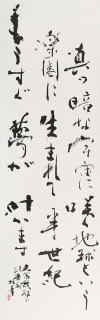 真っ暗な宇宙に咲く地球という
楽園に生まれて半世紀
もうすぐ夢が叶います